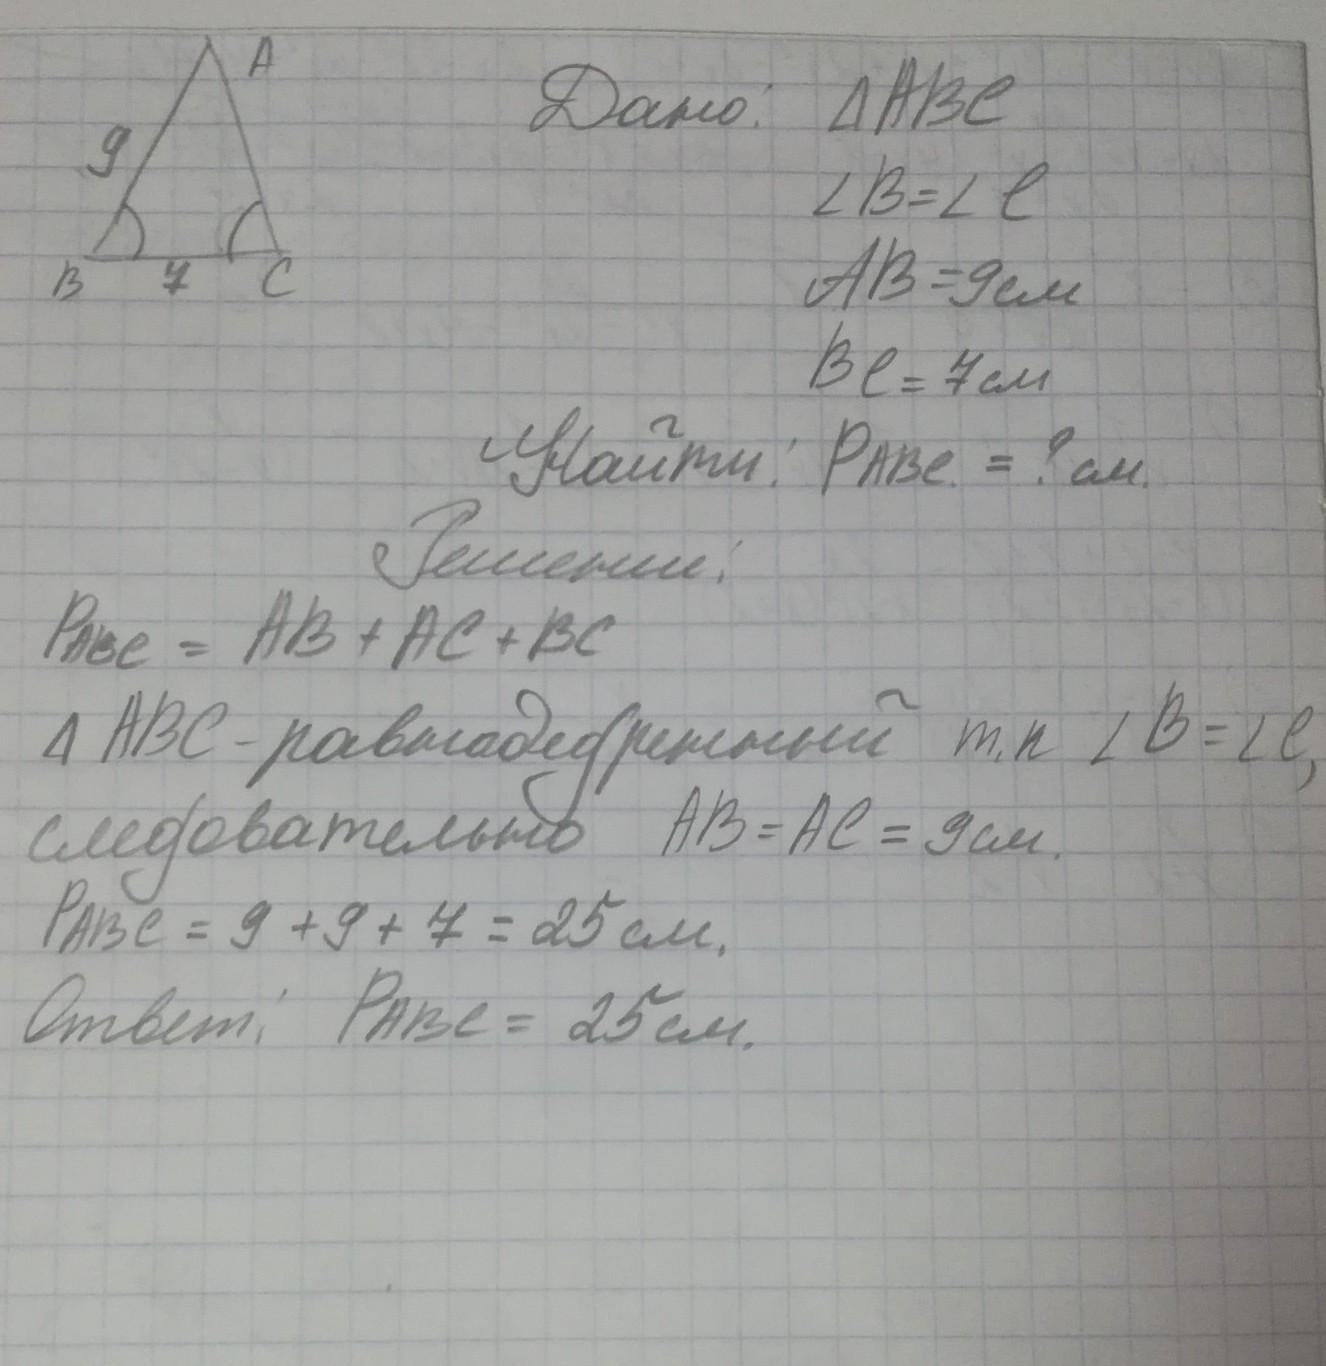 A
9
B 7 C
Дано: ΔABC
∠B=∠C
AB=9см
BC=7см
Найти: PABC. = ? см.
Решение:
PABC = AB + AC + BC
Δ ABC - равнобедренный т.к ∠B=∠C,
следовательно AB=AC=9см.
PABC = 9 + 9 + 7 = 25 см.
Ответ: PABC = 25 см.